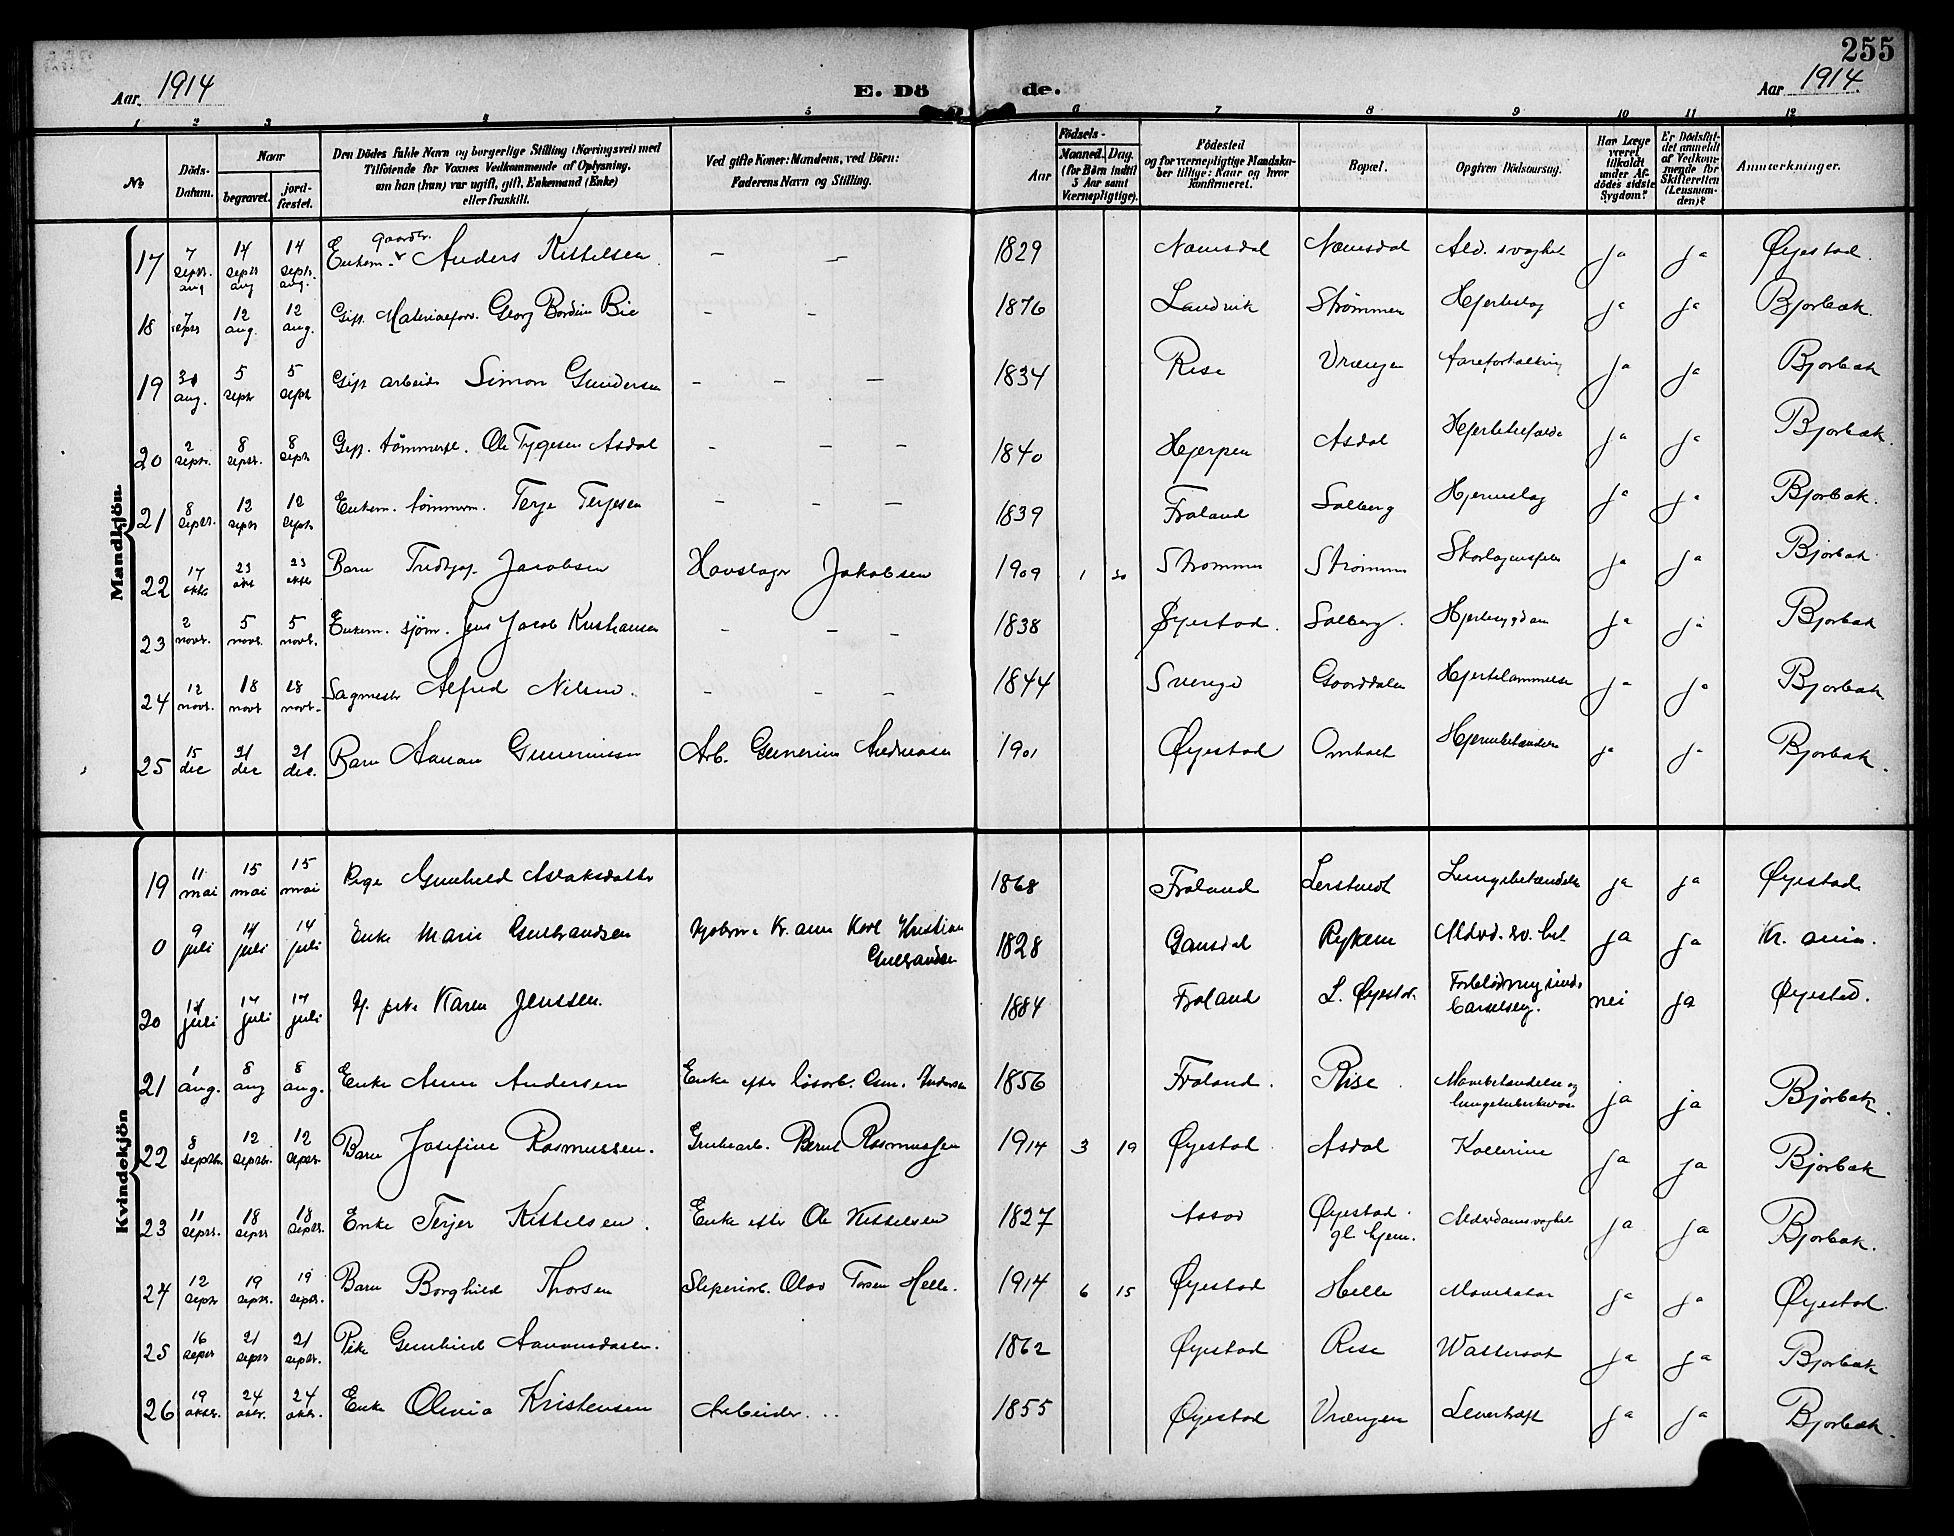 255
Aar 1914 E. Dö de. Aar 1914
1 2 3 4 5 6 7 8 9 10 11 12
No
Döds-Datum.
Naar
begravet.
jord-fæstet.
Den Dödes fulde Navn og borgerlige Stilling (Næringsvei) med
Tilföiende for Voxnes Vedkommende af Oplysning,
om han (hun) var ugift, gift, Enkemand (Enke)
eller fraskilt.
Ved gifte Koner: Mandens, ved Börn:
Faderens Navn og Stilling.
Födsels-
Aar
Maaned. Dag.
(for Börn indtil
5 Aar samt
Værnepligtige).
Födested
og for værnepligtige Mandska-
ber tillige: Naar og hvor
konfirmeret.
Bopæl.
Opgiven Dödsaarsag.
Har Læge
været
tilkaldt
under Af-
dödes sidste
Sygdom?
Er Dödsfal-
det anmeldt
af Vedkom-
mende for
Skifteretten
(Lensman-
den)?
Anmerkninger.
Mandkjön.
17 7 sept. 14 sept 14 sept. Enkem. gaardbr. Anders Kittelsen – – 1829 Næmsdal Næmsdal Ald. svaghet ja ja Øyestad.
18 7 aug 12 aug. 12 aug. Gift. Materialforv. Georg Bie – – 1876 Landvik Strømmen Hjerteslag ja ja Bjorbæk.
19 30 aug. 5 sept 5 sept Gift arbeid. Simon Gundersen – – – 1834 Rise Vrængen Aareforkalkning ja ja Bjorbæk
20 2 sept. 8 sept. 8 sept Gift. tømmerm. Ole Tygesen Asdal – – – 1840 Hjerpen Asdal ja ja Bjorbæk.
21 8 sept. 12 sept 12 sept Enkem. tømmerm. Terje Terjesen – – – 1839 Froland Solberg Hjerneslag ja ja Bjorbæk.
22 17 okt. 23 okt 23 okt Barn Jacobsen Hovslager Jakobsen 1909 1 30 Strømmen Strømmen Skarlagensfeber ja ja Bjorbæk
23 2 novb. 5 novb. 5 novb. Enkem. sjøm. Jens Jacob Kristiansen – – – 1838 Øyestad. Solberg. Hjertesygdom ja ja Bjorbæk
24 12 novb. 18 novb 18 novb. Sagmester Alfred Nilsen. – – – 1844 Sverige Gaarddalen Hjertelammelse ja ja Bjorbæk
25 15 dec 21 dec 21 dec. Barn Aanon Guneriussen Arb. Gunerius Andreasen 1901 Øyestad Omholt Hjernebetændelse ja ja Bjorbæk.
Kvindekjön
19 11 mai 15 mai 15 mai Pige Gunhild Aslaksdatter 1868 Froland Lerstvedt Lungebetændelse ja ja Øyestad.
0 9 juli 14 juli 14 juli Enke Marie Gulbrandsen Kr. ania Karl Kristian
Gulbrandsen 1828 Gausdal Ryken ja ja Kr. ania.
20 14 juli 17 juli 17 juli Karen Jenssen. 1884 Froland L. Øyestad. Forblødning under
barselseng. nei ja Øyestad.
21 1 aug. 8 aug 8 aug. Enke Anne Andersen Enke efter løsarb. Andersen 1856 Froland. Rise. Mavebetændelse og
lungetuberkulose ja ja Bjorbæk.
22 8 septbr. 12 septbr. 12 septbr. Barn Josefine Rasmussen. Grubearb. Bernt Rasmussen 1914 3 19 Øyestad Asdal Kollerine ja ja Bjorbæk
23 11 septr. 18 septr 18 septr. Enke Terjer Kittelsen. Enke efter Ole Kittelsen 1827 Øyestad.
gl. hjem. Alderdomsvaghet ja ja Bjorbæk.
24 12 septr 19 septr. 19 septr. Barn Borghild Thorsen Sliperiarb. Olav Torsen Helle. 1914 6 15 Øyestad Helle Mavekatar ja ja Øyestad.
25 16 septr 21 septr 21 septr. Pike Gunhild Aanonsdatter. 1862 Øyestad Rise Wattersot ja ja Bjorbæk
26 19 oktbr. 24 oktbr. 24 oktbr. Enke Olevia Kristensen Arbeider. .. 1855 Øyestad Vrængen Leverkræft ja ja Bjorbæk.